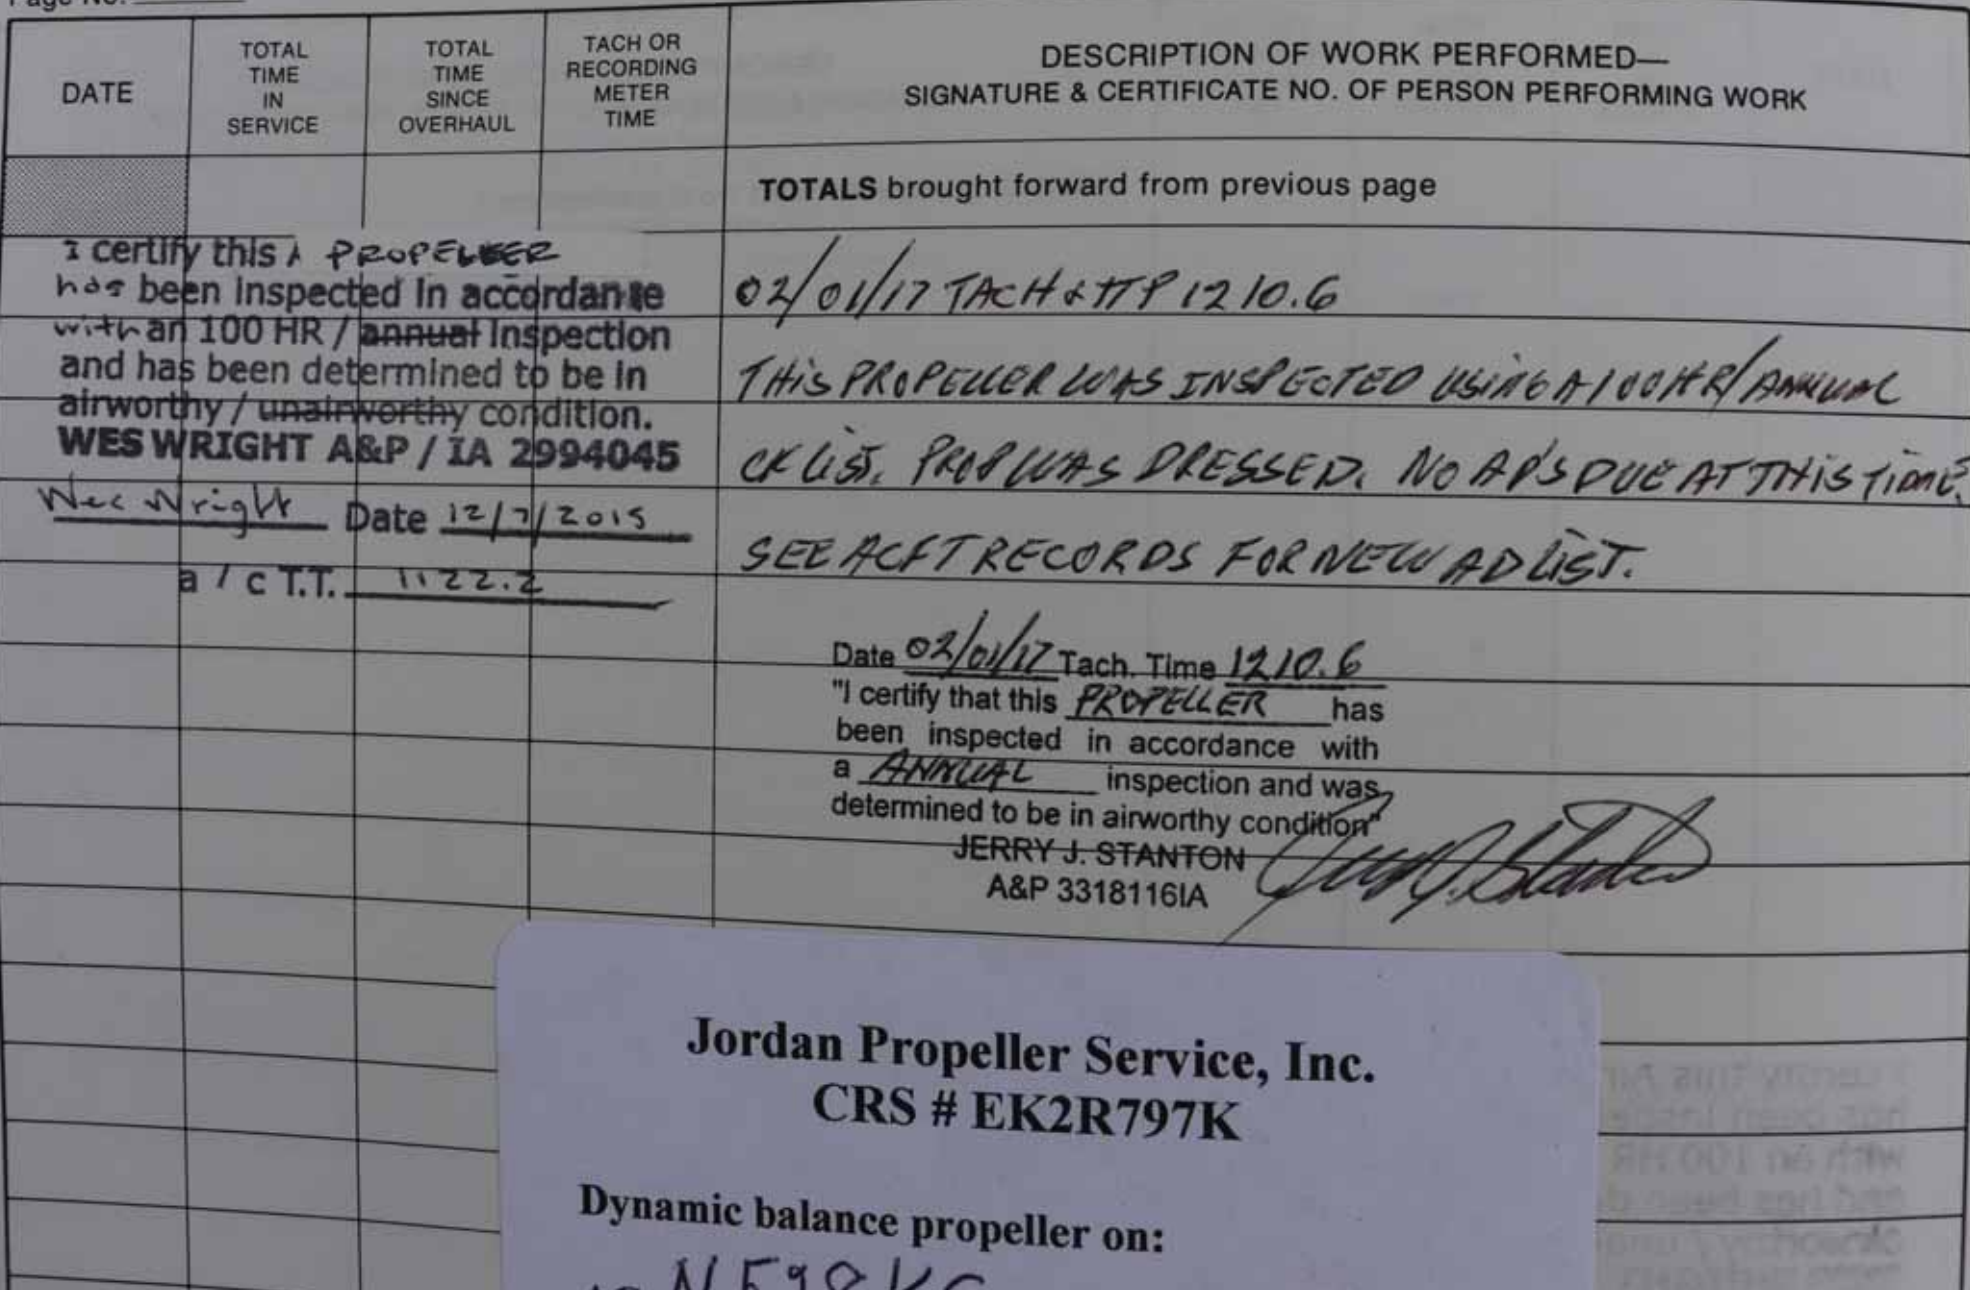 Page No.
DATE
TOTAL
TIME
IN
SERVICE
TOTAL
TIME
SINCE
OVERHAUL
TACH OR
RECORDING
METER
TIME
DESCRIPTION OF WORK PERFORMED—
SIGNATURE & CERTIFICATE NO. OF PERSON PERFORMING WORK
TOTALS brought forward from previous page
I certify this PROPELLER
has been inspected in accordance
with an 100 HR / annual inspection
and has been determined to be in
airworthy / unairworthy condition.
WES WRIGHT A&P / IA 2994045
Wes Wright Date 12/7/2015
a / c T.T. 1122.2
02/01/17 TACH & TTP 1210.6
THIS PROPELLER WAS INSPECTED USING A 100 HR/ANNUAL
CK LIST. PROP WAS DRESSED. NO AD'S DUE AT THIS TIME.
SEE ACFT RECORDS FOR NEW AD LIST.
Date 02/01/17 Tach. Time 1210.6
"I certify that this PROPELLER has
been inspected in accordance with
a ANNUAL inspection and was
determined to be in airworthy condition"
JERRY J. STANTON
A&P 3318116IA
Jerry J. Stanton
Jordan Propeller Service, Inc.
CRS # EK2R797K
Dynamic balance propeller on: